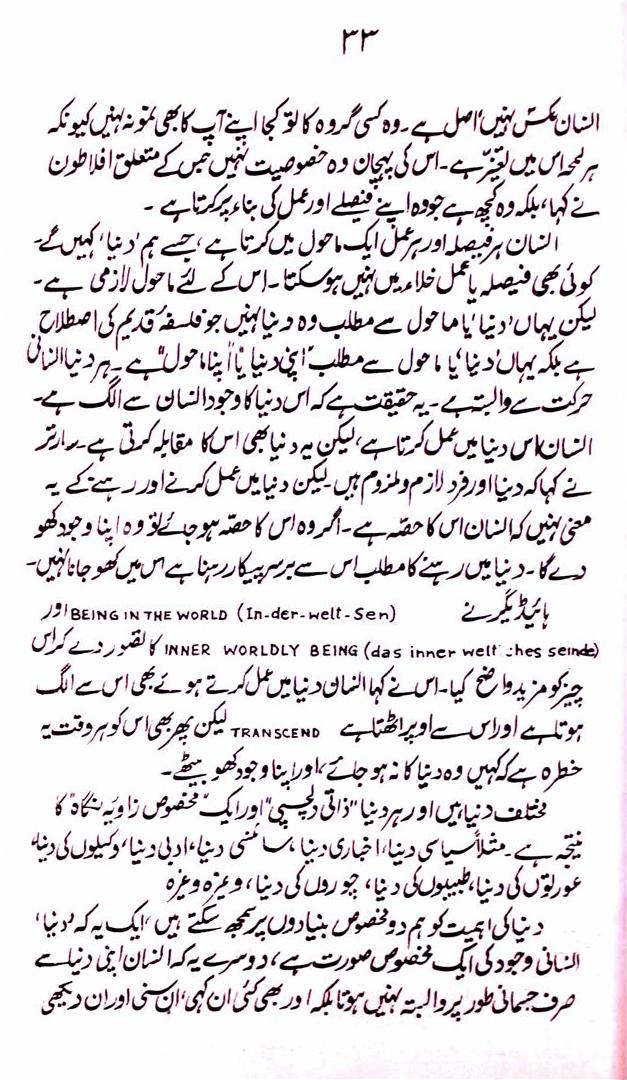 ۳۳
انسان عکس نہیں اصل ہے۔ وہ کسی گروہ کا تو کجا اپنے آپ کا بھی نمونہ نہیں کیونکہ
ہر لمحہ اس میں تغیّر ہے۔ اس کی پہچان وہ خصوصیت نہیں جس کے متعلق افلاطون
نے کہا، بلکہ وہ کچھ ہے جو وہ اپنے فیصلے اور عمل کی بناء پر کرتا ہے ۔
انسان ہر فیصلہ اور ہر عمل ایک ماحول میں کرتا ہے، جسے ہم 'دنیا' کہیں گے۔
کوئی بھی فیصلہ یا عمل خلاء میں نہیں ہو سکتا۔ اس کے لئے ماحول لازمی ہے۔
لیکن یہاں 'دنیا' یا ماحول سے مطلب وہ دنیا نہیں جو فلسفۂ قدیم کی اصطلاح
ہے بلکہ یہاں 'دنیا' یا ماحول سے مطلب "اپنی دنیا" یا "اپنا ماحول" ہے۔ ہر دنیا انسانی
حرکت سے وابستہ ہے۔ یہ حقیقت ہے کہ اس دنیا کا وجود انسان سے الگ ہے۔
انسان اس دنیا میں عمل کرتا ہے، لیکن یہ دنیا بھی اس کا مقابلہ کرتی ہے۔ سارتر
نے کہا کہ دنیا اور فرد لازم و ملزوم ہیں۔ لیکن دنیا میں عمل کرنے اور رہنے کے یہ
معنی نہیں کہ انسان اس کا حصّہ ہے۔ اگر وہ اس کا حصّہ ہو جائے تو وہ اپنا وجود کھو
دے گا۔ دنیا میں رہنے کا مطلب اس سے برسرِ پیکار رہنا ہے اس میں کھو جانا نہیں۔
ہائیڈیگر نے BEING IN THE WORLD (In-der-welt-Sen) اور
INNER WORLDLY BEING (das inner welt ches seinde) کا تصور دے کر اس
چیز کو مزید واضح کیا۔ اس نے کہا انسان دنیا میں عمل کرتے ہوئے بھی اس سے الگ
ہوتا ہے اور اس سے اوپر اٹھتا ہے TRANSCEND لیکن پھر بھی اس کو ہر وقت یہ
خطرہ ہے کہ کہیں وہ دنیا کا نہ ہو جائے، اور اپنا وجود کھو بیٹھے۔
مختلف دنیا ہیں اور ہر دنیا "ذاتی دلچسپی" اور ایک "مخصوص زاویہ نگاہ" کا
نتیجہ ہے۔ مثلاً سیاسی دنیا، اخباری دنیا، سائنسی دنیا، ادبی دنیا، وکیلوں کی دنیا،
عورتوں کی دنیا، طبیبوں کی دنیا، چوروں کی دنیا، وغیرہ وغیرہ
دنیا کی اہمیت کو ہم دو مخصوص بنیادوں پر سمجھ سکتے ہیں، ایک یہ کہ 'دنیا'
انسانی وجود کی ایک مخصوص صورت ہے، دوسرے یہ کہ انسان اپنی دنیا سے
صرف جسمانی طور پر وابستہ نہیں ہوتا بلکہ اور بھی کئی ان کہی، ان سنی اور ان دیکھی